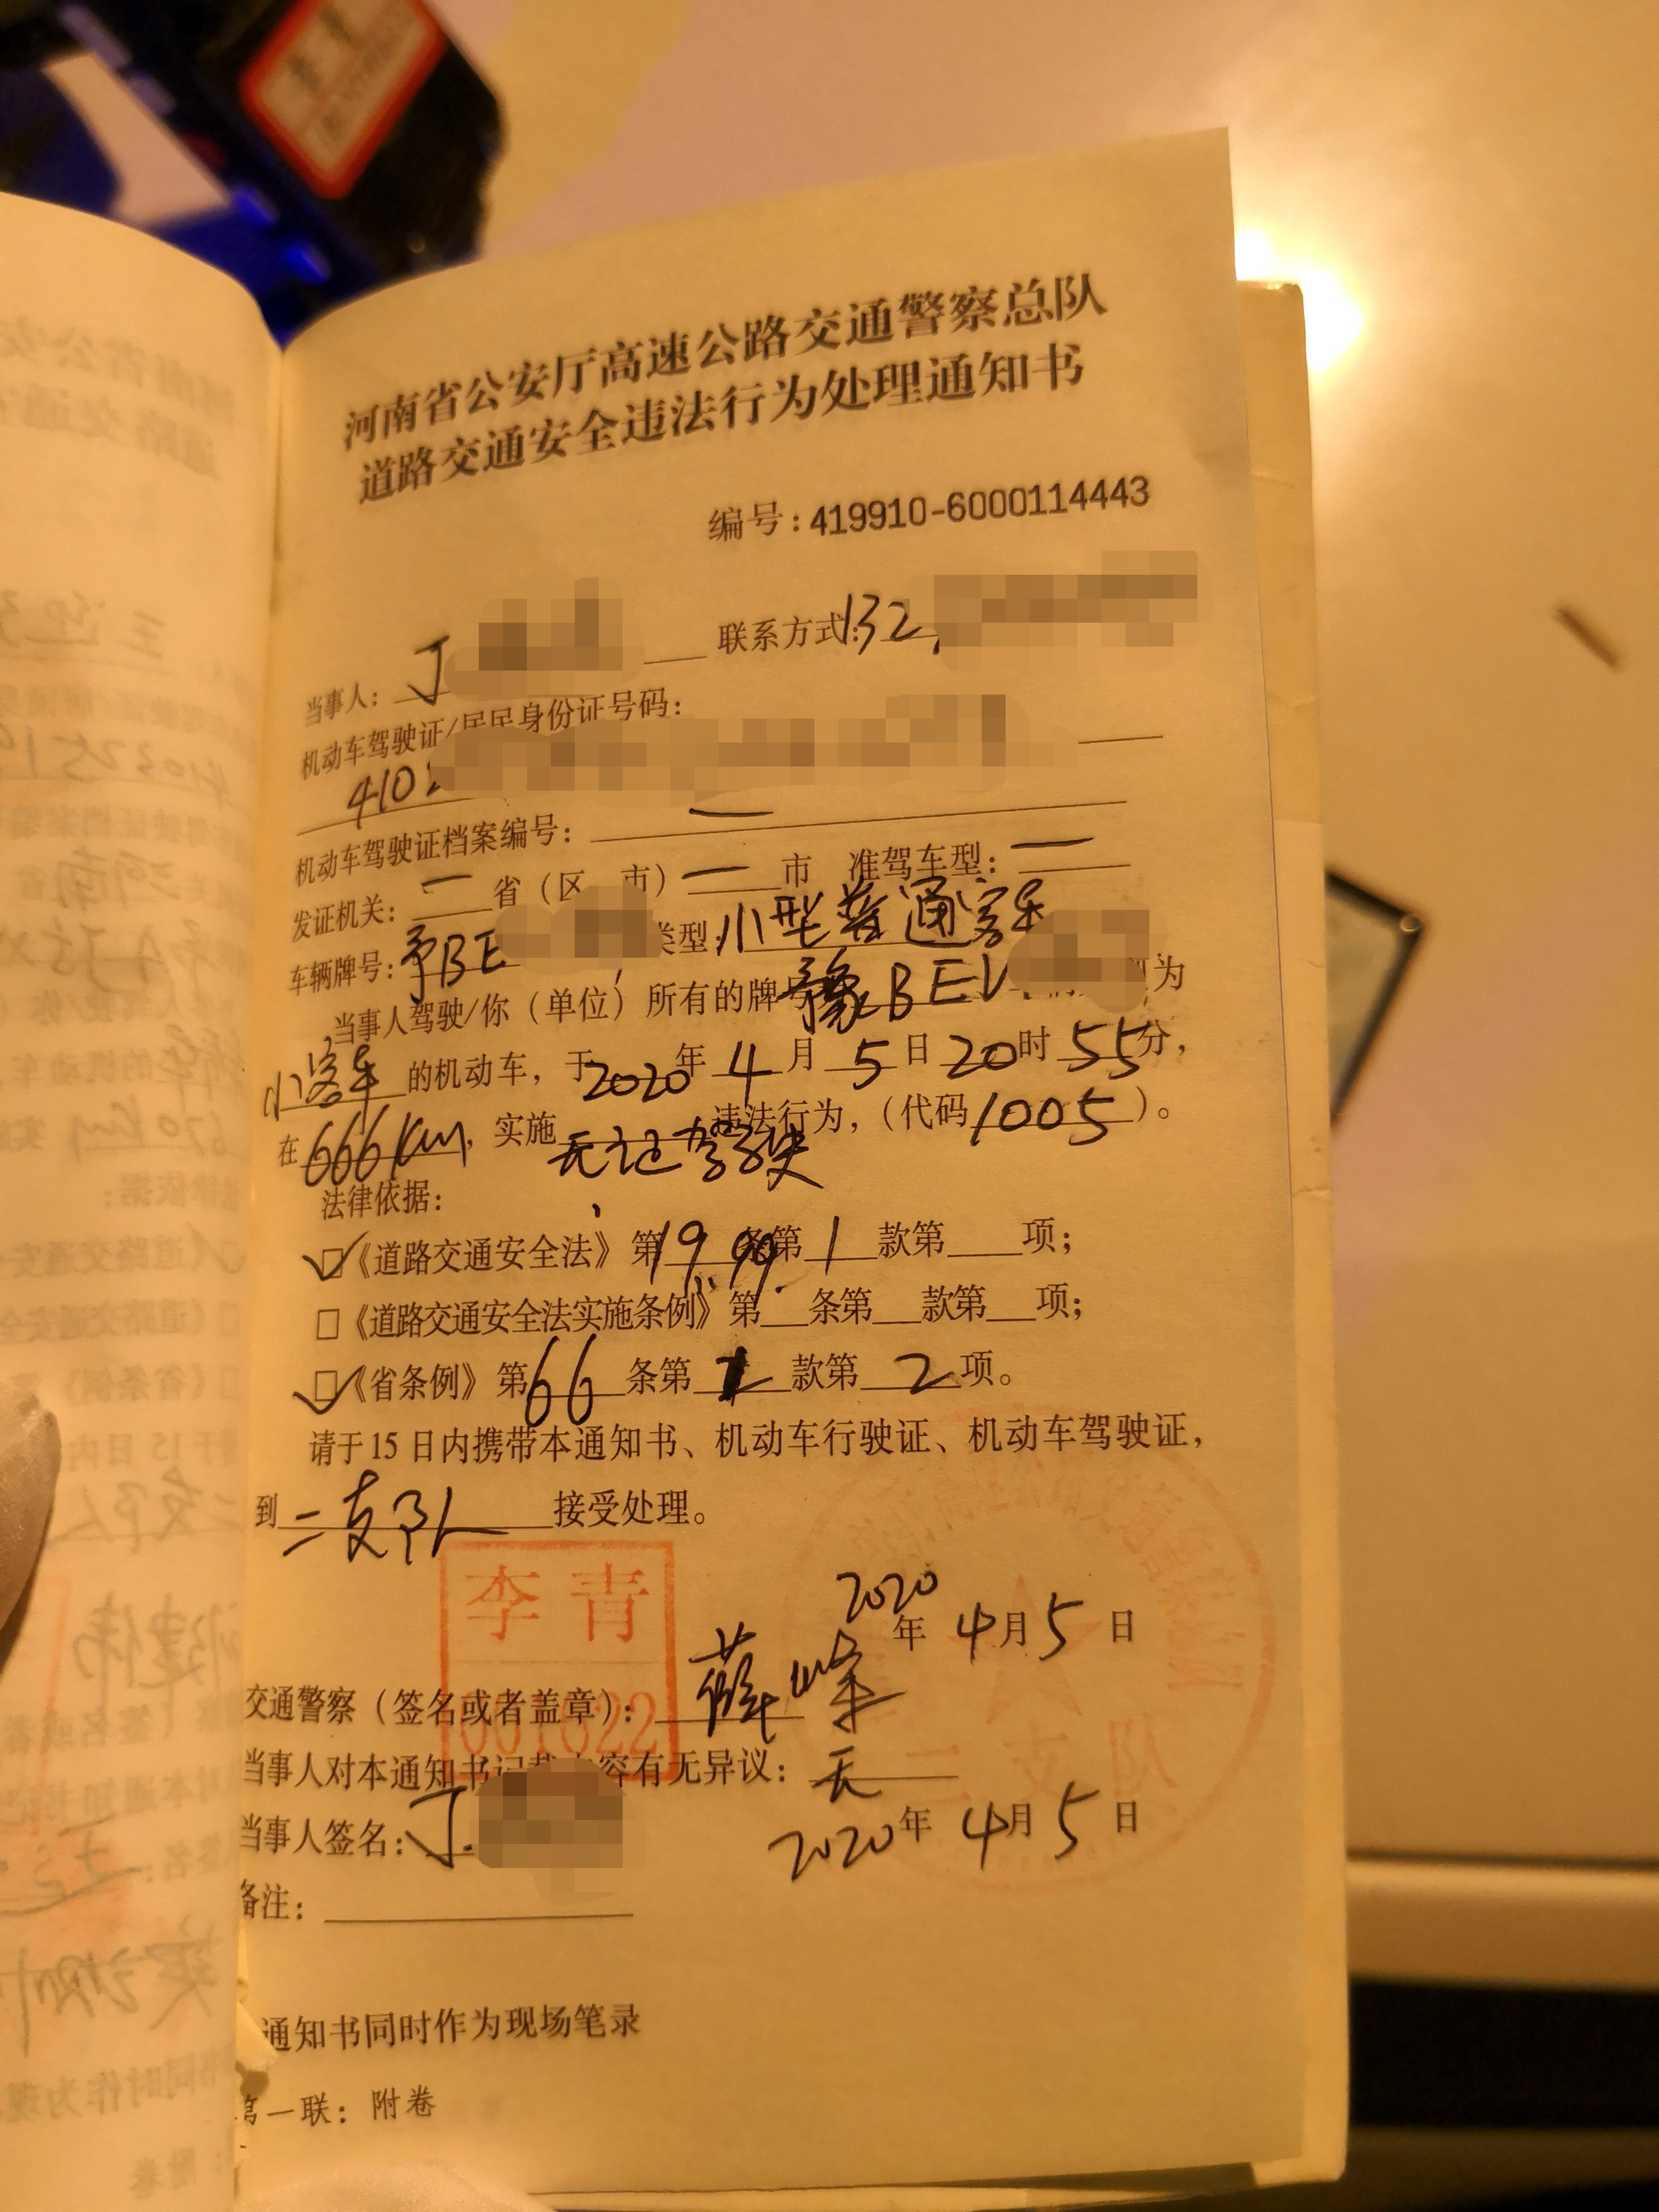 河南省公安厅高速公路交通警察总队
道路交通安全违法行为处理通知书
编号：419910-6000114443
当事人：丁 联系方式：132
机动车驾驶证/居民身份证号码：
410
机动车驾驶证档案编号：—
发证机关：—省（区 市）—市 准驾车型：—
车辆牌号：予BE 类型：小型普通客车
当事人驾驶/你（单位）所有的牌号豫BEV 为
小客车的机动车，于2020年4月5日20时55分，
在666Km，实施无证驾驶违法行为，（代码1005）。
法律依据：
☑《道路交通安全法》第19 99条第1款第 项；
□《道路交通安全法实施条例》第 条第 款第 项；
☑《省条例》第66条第 款第2项。
请于15日内携带本通知书、机动车行驶证、机动车驾驶证，
到二支队接受处理。
李青
2020年4月5日
交通警察（签名或者盖章）：薛峰
001622
二支队
当事人对本通知书记载内容有无异议：无
当事人签名：丁 2020年4月5日
备注：
通知书同时作为现场笔录
第一联：附卷